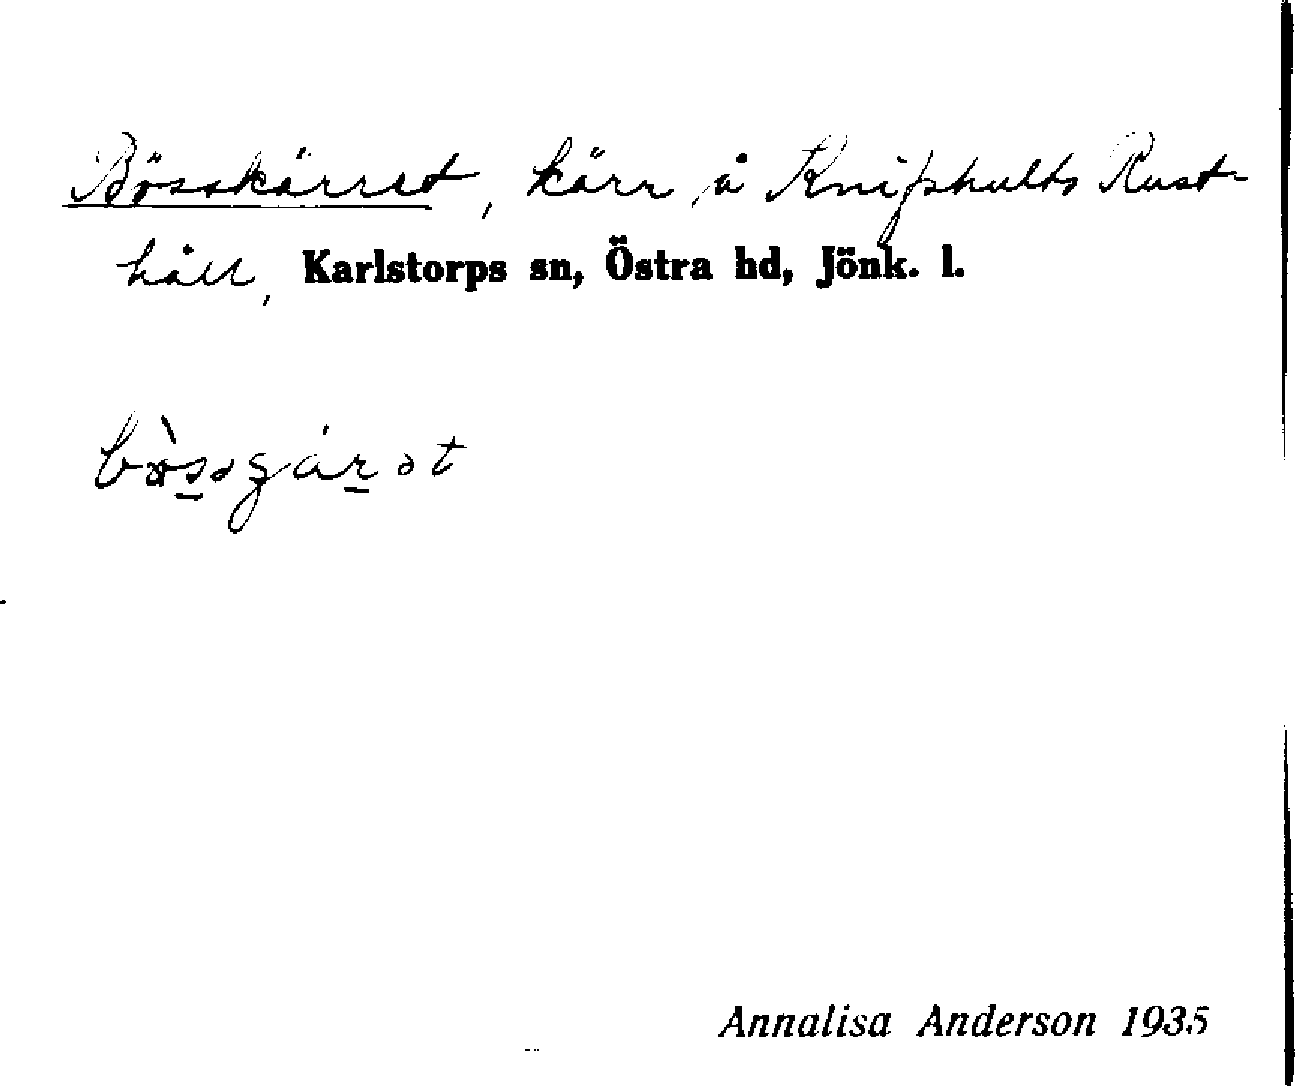 Bösskärret, kärr å Knifshults Rust-
håll, Karlstorps sn, Östra hd, Jönk. l.
Annalisa Anderson 1935